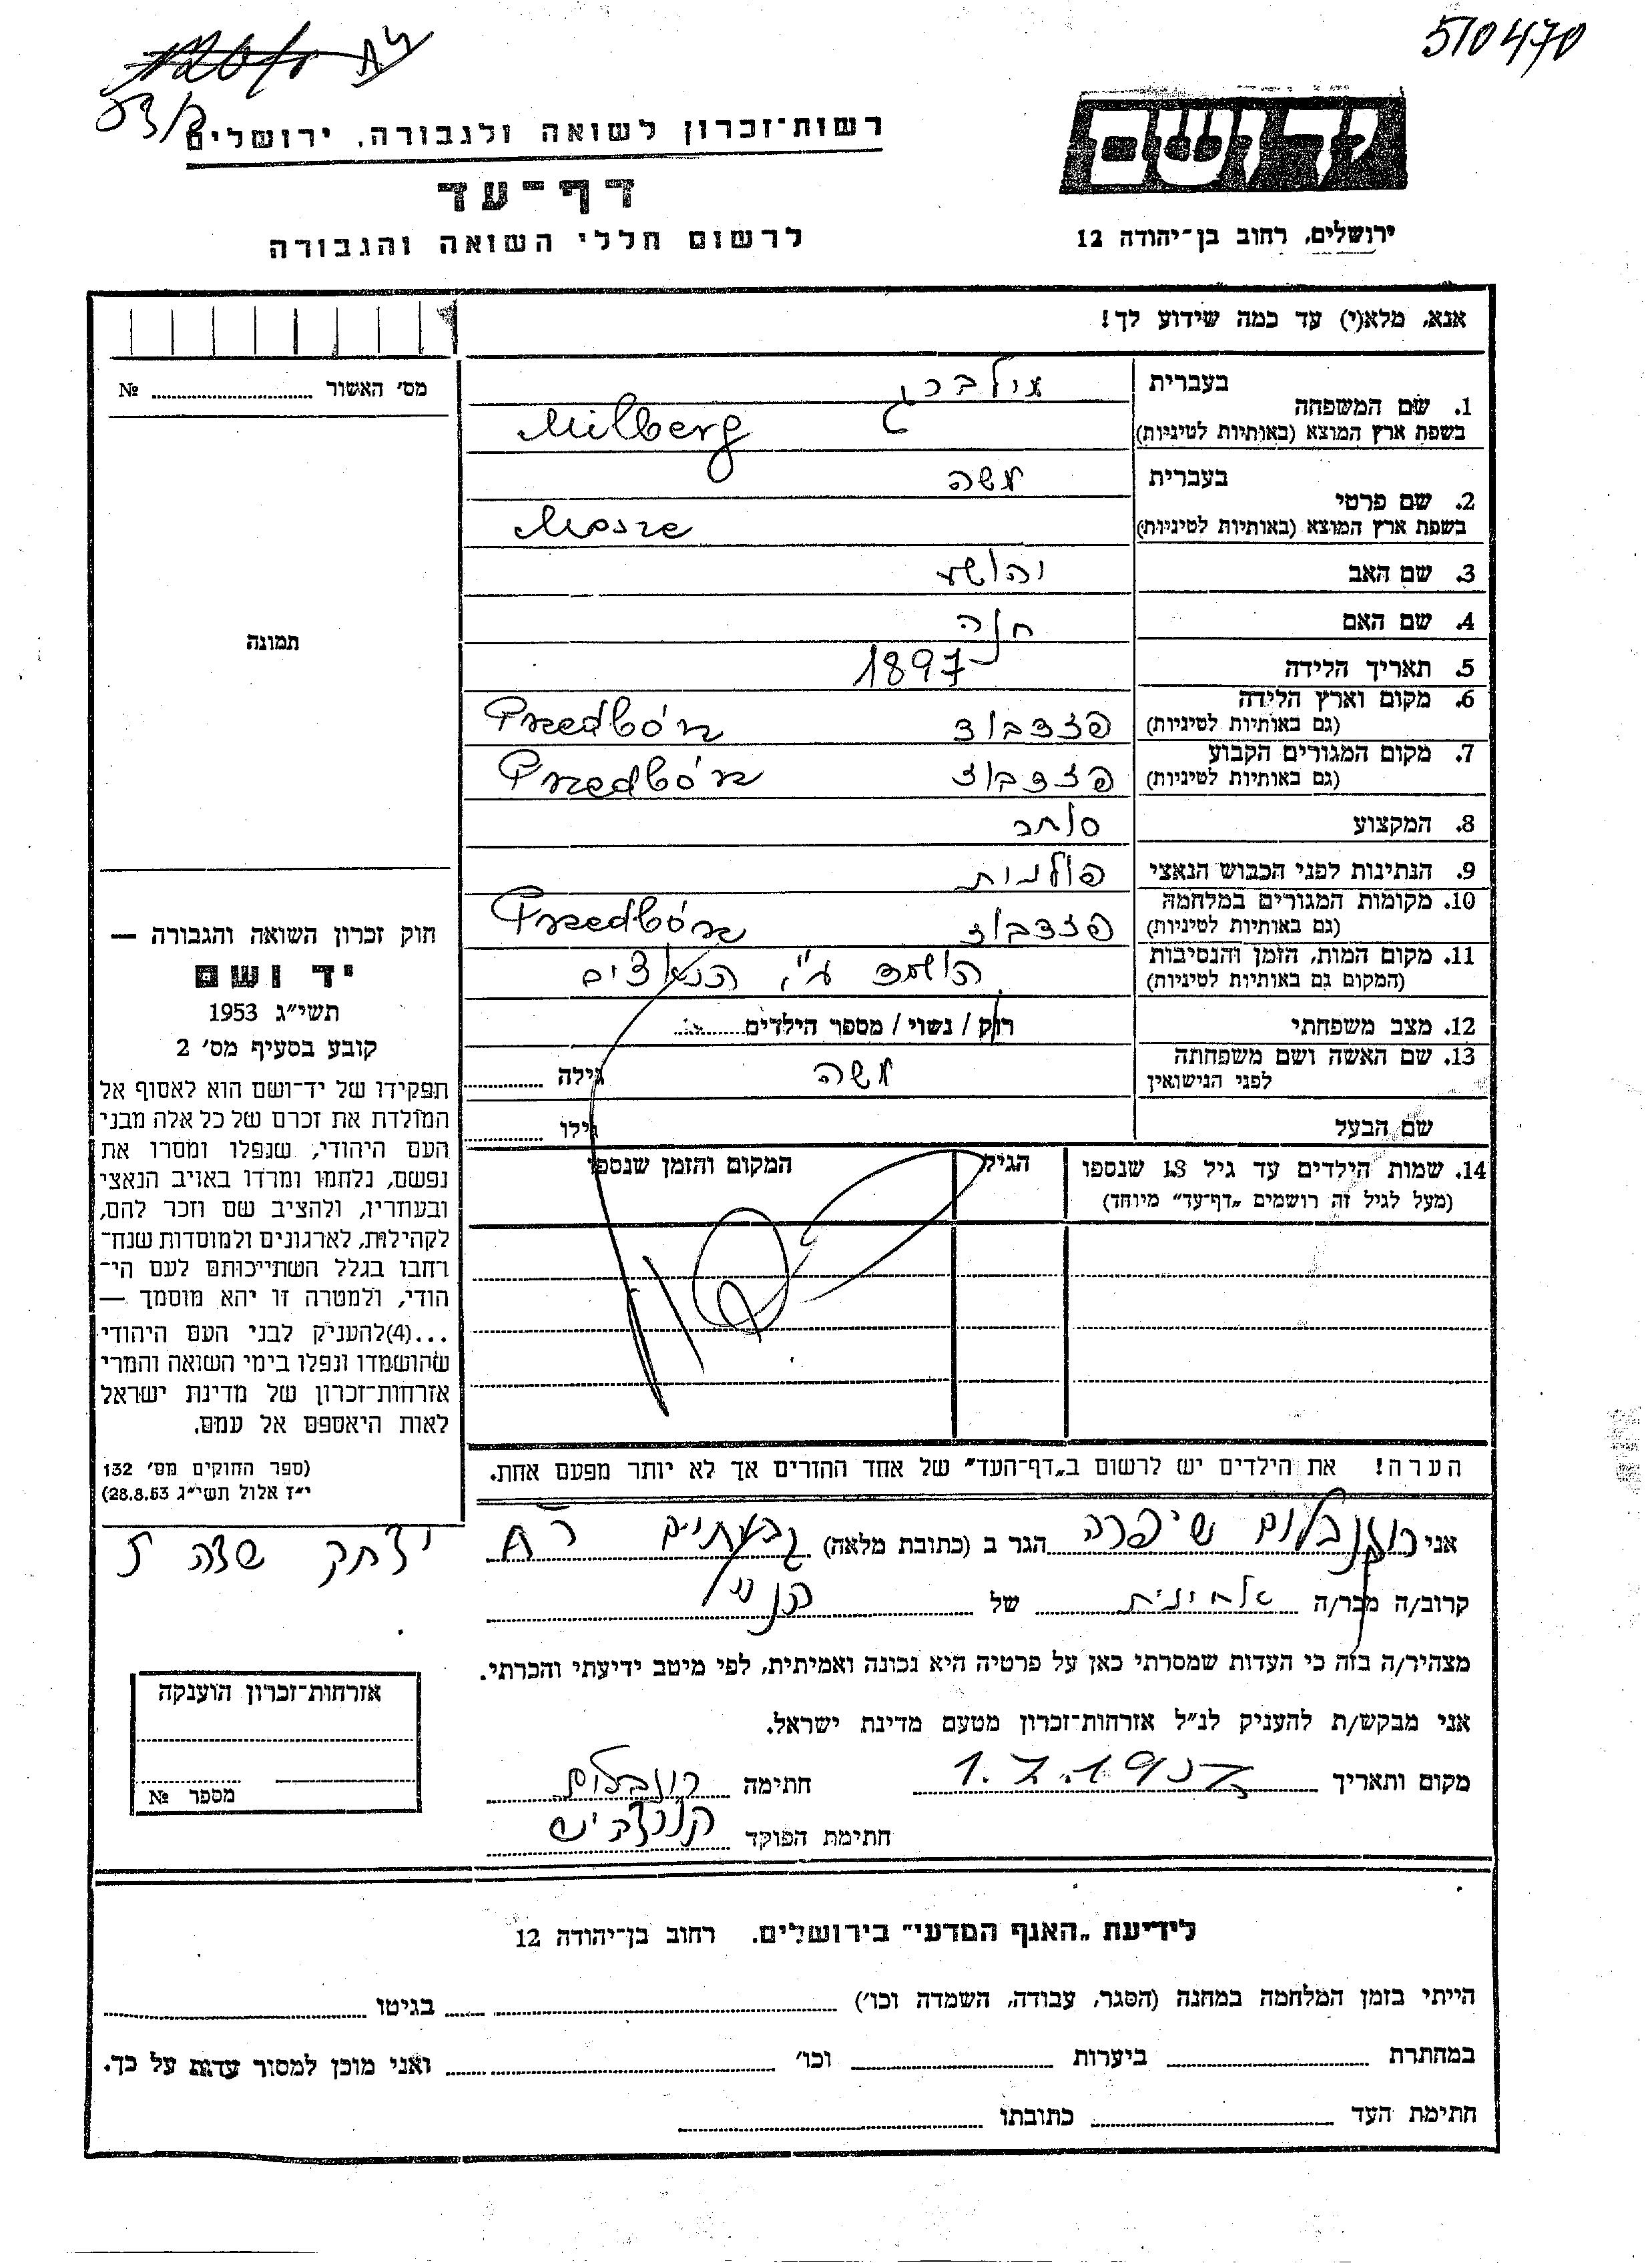 510470
יד ושם
ירושלים, רחוב בן־יהודה 12
רשות־זכרון לשואה ולגבורה, ירושלים
דף־עד
לרשום חללי השואה והגבורה
אנא, מלא(י) עד כמה שידוע לך!
מס׳ האשור № 
1. שם המשפחה
בעברית מילברג
בשפת ארץ המוצא (באותיות לטיניות) Milberg
2. שם פרטי
בעברית משה
בשפת ארץ המוצא (באותיות לטיניות)
3. שם האב יהושע
4. שם האם חנה
5. תאריך הלידה 1897
6. מקום וארץ הלידה
(גם באותיות לטיניות) Przedbórz
7. מקום המגורים הקבוע
(גם באותיות לטיניות) Przedbórz
8. המקצוע סוחר
9. הנתינות לפני הכבוש הנאצי פולנית
10. מקומות המגורים במלחמה
(גם באותיות לטיניות) Przedbórz
11. מקום המות, הזמן והנסיבות
(המקום גם באותיות לטיניות) הושמד ע״י הנאצים
12. מצב משפחתי רוק / נשוי / מספר הילדים
13. שם האשה ושם משפחתה
לפני הנישואין משה גילה
שם הבעל גילו
14. שמות הילדים עד גיל 18 שנספו
(מעל לגיל זה רושמים „דף־עד״ מיוחד)
הגיל
המקום והזמן שנספו
תמונה
חוק זכרון השואה והגבורה —
יד ושם
תשי״ג 1953
קובע בסעיף מס׳ 2
תפקידו של יד־ושם הוא לאסוף אל
המולדת את זכרם של כל אלה מבני
העם היהודי, שנפלו ומסרו את
נפשם, נלחמו ומרדו באויב הנאצי
ובעוזריו, ולהציב שם וזכר להם,
לקהילות, לארגונים ולמוסדות שנח־
רחבו בגלל השתייכותם לעם הי־
הודי, ולמטרה זו יהא מוסמך —
...(4)להעניק לבני העם היהודי
שהושמדו ונפלו בימי השואה והמרי
אזרחות־זכרון של מדינת ישראל
לאות היאספם אל עמם.
(ספר החוקים מס׳ 132
י״ז אלול תשי״ג 28.8.53)
הערה! את הילדים יש לרשום ב„דף־העד״ של אחד ההורים אך לא יותר מפעם אחת.
אני רוזנבלום שיפרה הגר ב (כתובת מלאה) גבעתיים רח
יצחק שדה
קרוב/ה מכר/ה אחינית של הנ״ל
מצהיר/ה בזה כי העדות שמסרתי כאן על פרטיה היא נכונה ואמיתית, לפי מיטב ידיעתי והכרתי.
אני מבקש/ת להעניק לנ״ל אזרחות־זכרון מטעם מדינת ישראל.
מקום ותאריך
חתימה רוזנבלום
חתימת הפוקד
אזרחות־זכרון הוענקה
מספר №
לידיעת „האגף המדעי״ בירושלים. רחוב בן־יהודה 12
הייתי בזמן המלחמה במחנה (הסגר, עבודה, השמדה וכו׳) בגיטו
במחתרת ביערות וכו׳ ואני מוכן למסור עדות על כך.
חתימת העד כתובתו